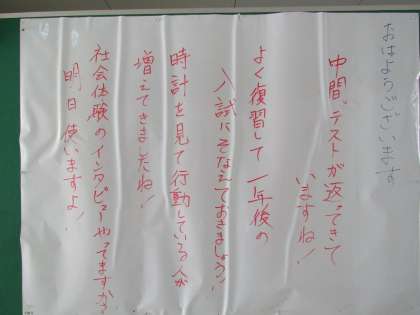 おはようございます
中間、テストが返ってきて
いますね!
よく復習して一年後の
入試にそなえておきましょう!
時計を見て行動している人が
増えてきましたね!
社会体験のインタビューやってますか?
明日使いますよ!